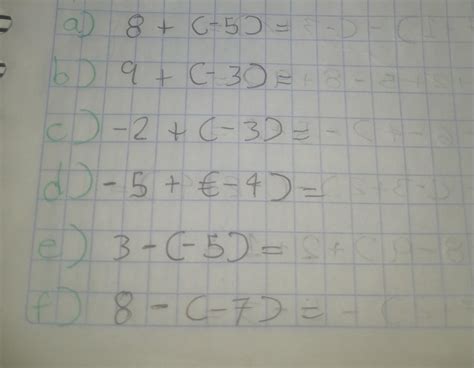 a) 8 + (-5) =
b) 9 + (-3) =
c) -2 + (-3) =
d) -5 + (-4) =
e) 3 - (-5) =
f) 8 - (-7) =